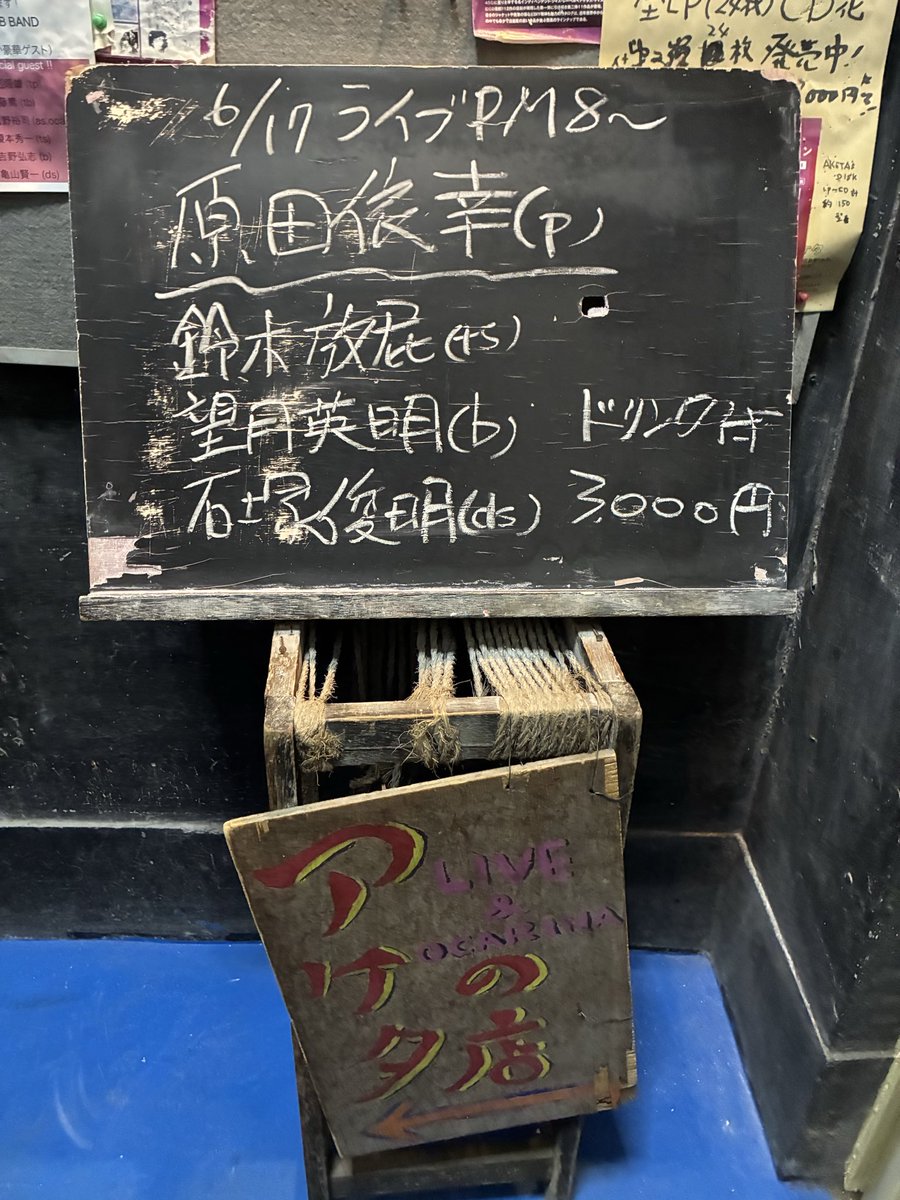 B BAND
豪華ゲスト)
cial guest !!
(tp)
(tb)
野裕司 (as.oca
榎本秀一 (ts)
吉野弘志 (b)
亀山賢一 (ds)
全LP(24枚)CD化
24
枚 発売中!
000円
AKETA'S
DISK
約150
6/17 ライブPM8〜
原田俊幸(p)
鈴木放屁(ts)
望月英明(b) ドリンク付
石塚俊明(ds) 3,000円
アケタの店
LIVE
&
OCARINA